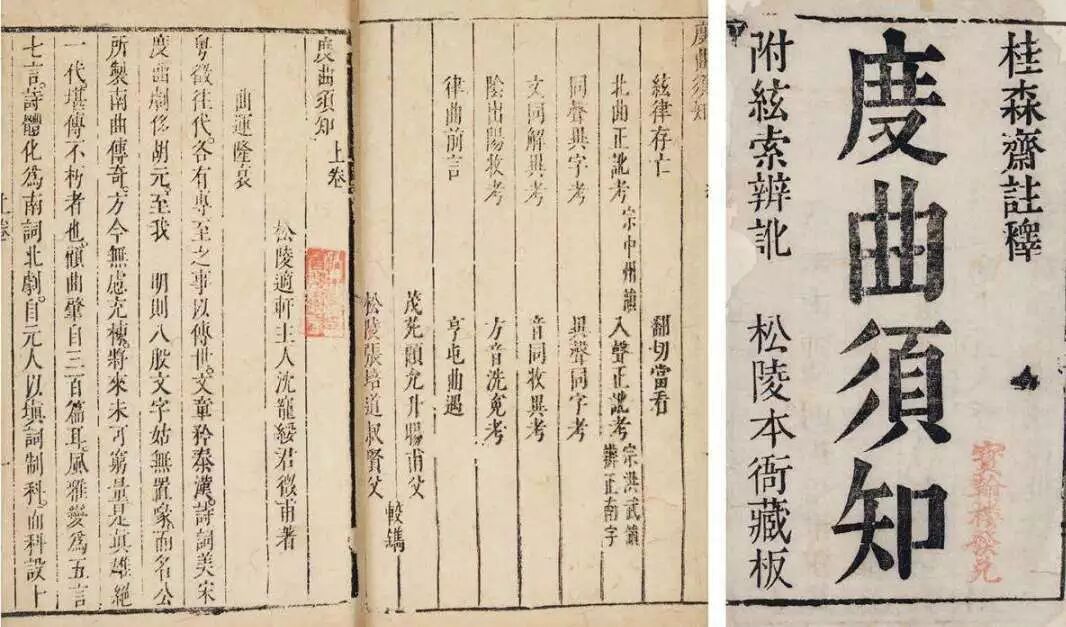 桂森齋註釋
度曲須知
附絃索辨訛 松陵本衙藏板
寶翰樓發兌
度曲須知
絃律存亡 翻切當看
北曲正訛考 宗中州韻 入聲正訛考 宗洪武韻 辨正南字
同聲異字考 異聲同字考
文同解異考 音同收異考
陰出陽收考 方音洗寃考
律曲前言 亨屯曲遇
茂苑顧允升賜甫父
松陵張培道叔賢父 較鐫
度曲須知 上卷
松陵適軒主人沈寵綏君徵甫著
曲運隆衰
粵徵往代各有專至之事以傳世文章矜秦漢詩詞美宋
度曲劇侈胡元至我 明則八股文字姑無置喙而名公
所製南曲傳奇方今無慮充棟將來未可窮量是真雄絕
一代堪傳不朽者也顧曲肇自三百篇耳風雅變為五言
七言詩體化為南詞北劇自元人以填詞制科而科設十
上卷 一